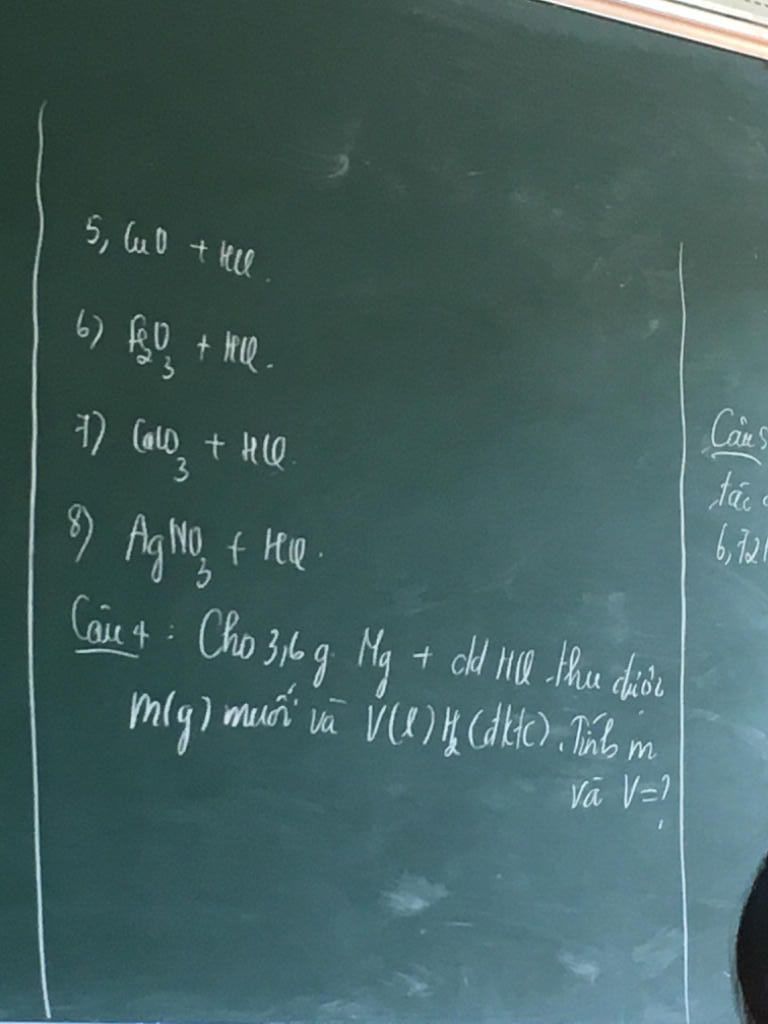 5, CuO + HCl.
6) Fe2O3 + HCl.
7) CaCO3 + HCl.
8) AgNO3 + HCl.
Câu 4: Cho 3,6 g Mg + dd HCl thu được
m(g) muối và V(l) H2 (đktc). Tính m
và V=?
Câu 5
tác
6,72